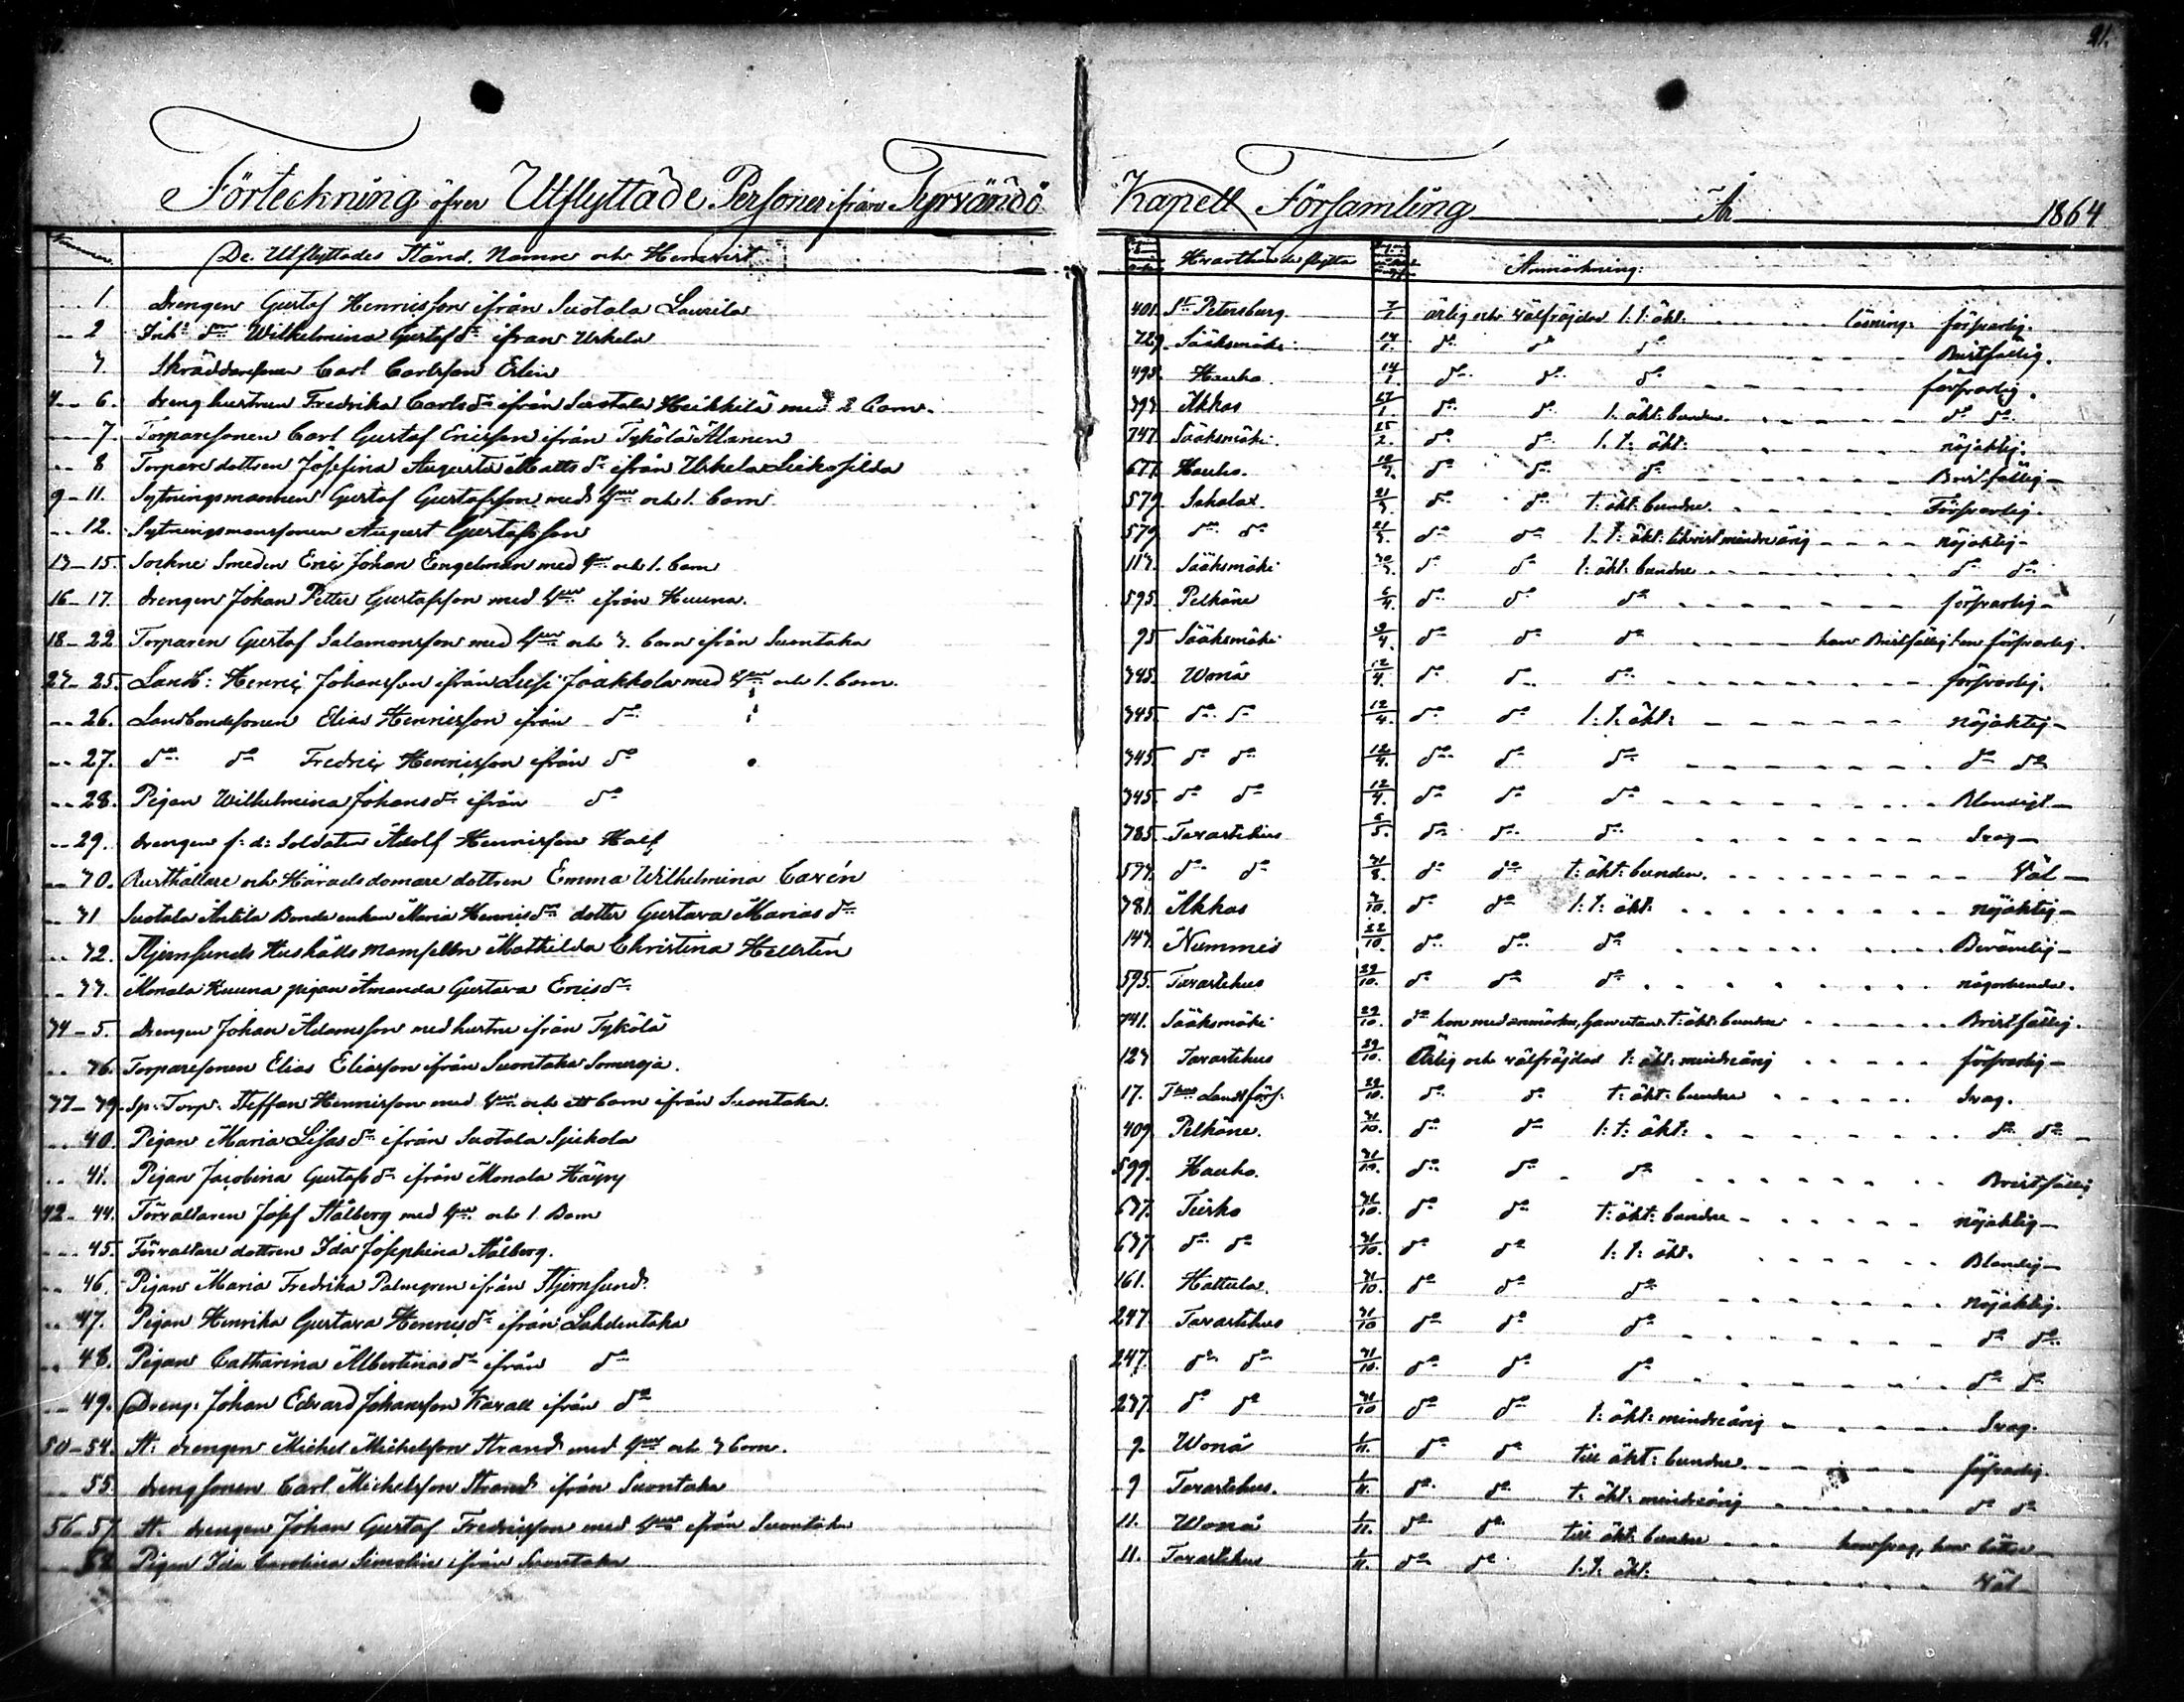 21.
Förteckning öfver Utflyttade Personer ifrån Tyrvändö Kapell Församling År 1864
Nummer. De Utflyttades Stånd, Namn och Hemvist. Hvarthän de flytta Anmärkning:
1 Drengen Gustaf Henricsson ifrån Suotala Laurila 401. St Petersburg. 7/1 ärlig och välfräjdad l: t: äkt: läsning: försvarlig.
2 Inh: dn Wilhelmina Gustafdr ifrån Urhela 729. Sääksmäki. 14/1. do do do Bristfällig.
3 Skräddaresonen Carl Carlsson Erlin 493. Hauho. 14/1. do do do försvarlig.
4 - 6. drenghustrun Fredrika Carlsdr ifrån Suotala Heikkilä med 2 barn. 393. Akkas 27/1. do do l: äkt: bunden. do do
7. Torparesonen Carl Gustaf Ericsson ifrån Tykölä Alanen 747. Sääksmäki. 25/2. do do l. t: äkt: nöjaktig.
8 Torparedottren Josefina Augusta Mattsdr ifrån Urhela 677. Hauho. do do do Bristfällig
9 - 11. Sytningsmannen Gustaf Gustafsson med hu och 1. barn 579. Sahalax. 21/3. do do t: äkt: bunden. Försvarlig.
12. Sytningsmanssonen August Gustafsson 579 do do 21/3. do do l. t: äkt: likvist mindreårig nöjaktig
13 - 15. Sockne Smeden Eric Johan Engelman med hu och 1. barn 113. Sääksmäki 30/3. do do t: äkt: bundne do do
16 - 17. drengen Johan Petter Gustafsson med hu ifrån Huuna. 595. Pelkäne 6/4. do do do försvarlig
18 - 22 Torparen Gustaf Salamonsson med hu och 3. barn ifrån Suontaka 95 Sääksmäki 9/4. do do do han Bristfällig hon försvarlig.
23 - 25. Landb: Henric Johansson ifrån Jaakkola med hu och 1. barn. 345. Wonå 12/4. do do do försvarlig.
26. Landbondesonen Elias Henricsson ifrån do 345. do do 12/4. do do l: t: äkt: nöjaktig
27. do do Fredric Henricsson ifrån do 345. do do 12/4. do do do do do
28. Pigan Wilhelmina Johansdr ifrån do 345. do do 12/4. do do do Blandigt
29. drengen f: d: Soldaten Adolf Henricsson Half 785. Tavastehus 6/5. do do do Svag
30. Rusthållare och Häradsdomare dottren Emma Wilhelmina Caxén 573. do do 31/8. do do t: äkt: bunden. Väl
31 Suotala Antila Bonde enkan Maria Henricsdr dotter Gustava Mariasdr 381. Akkas 3/10. do do l: t: äkt: nöjaktig
32. Stjernsunds Hushålls mamsellen Mathilda Christina Hellstén 143. Nummis 22/10. do do do Berömlig
33. Monala Huuna pigan Amanda Gustava Ericsdr 595. Tavastehus 29/10. do do do någorlunda.
34 - 5. drengen Johan Adamsson med hustru ifrån Tykölä 741. Sääksmäki 29/10. do Bristfällig.
36. Torparesonen Elias Eliasson ifrån Suontaka Someroja. 123 Tavastehus 29/10. Ärlig och välfräjdad t: äkt: mindreårig försvarlig
37 - 39. Sp: Torp: Steffan Henricsson med hu och ett barn ifrån Suontaka. 17. Landsförs. 29/10. do do t: äkt: bundne Svag.
40. Pigan Maria Lisasdr ifrån Suotala 409. Pelkäne. 31/10. do do l: t: äkt: do do
41. Pigan Jacobina Gustafsdr ifrån Monala Häyry 599. Hauho. 31/10. do do do Bristfällig
42 - 44. Förvaltaren Josef Stålberg med hu och 1 Barn 637. 31/10. do do t: äkt: bundne nöjaktig
45. Förvaltare dottren Ida Josephina Stålberg. 637 do do 31/10. do do l: t: äkt. Blandig
46. Pigan Maria Fredrika Palmgren ifrån Stjernsund. 161. Hattula. 31/10. do do do nöjaktig.
47. Pigan Henrika Gustava Henricsdr ifrån Lahdentaka 247. Tavastehus 31/10 do do do do do
48. Pigan Catharina Albertinasdr ifrån do 247. do do 31/10. do do do do do
49. Dreng: Johan Edvard Johansson Kavall ifrån do 237. do do 31/10 do do t: äkt: mindreårig Svag.
50 - 54. St: drengen Michel Michelsson Strand med hu och 3 barn. 9. Wonå 1/11. do do till äkt: bundne. försvarlig.
55. drengsonen Carl Michelsson Strand ifrån Suontaka 9 Tavastehus. 1/11. do do t: äkt: mindreårig do do
56 - 57 St: drengen Johan Gustaf Fredricsson med hu ifrån Suontaka 11. Wonå 1/11. do do till äkt: bundne han svag, hon bättre
58 Pigan Ida Carolina Simolin ifrån Suontaka 11. Tavastehus 1/11. do do l: t: äkt: väl